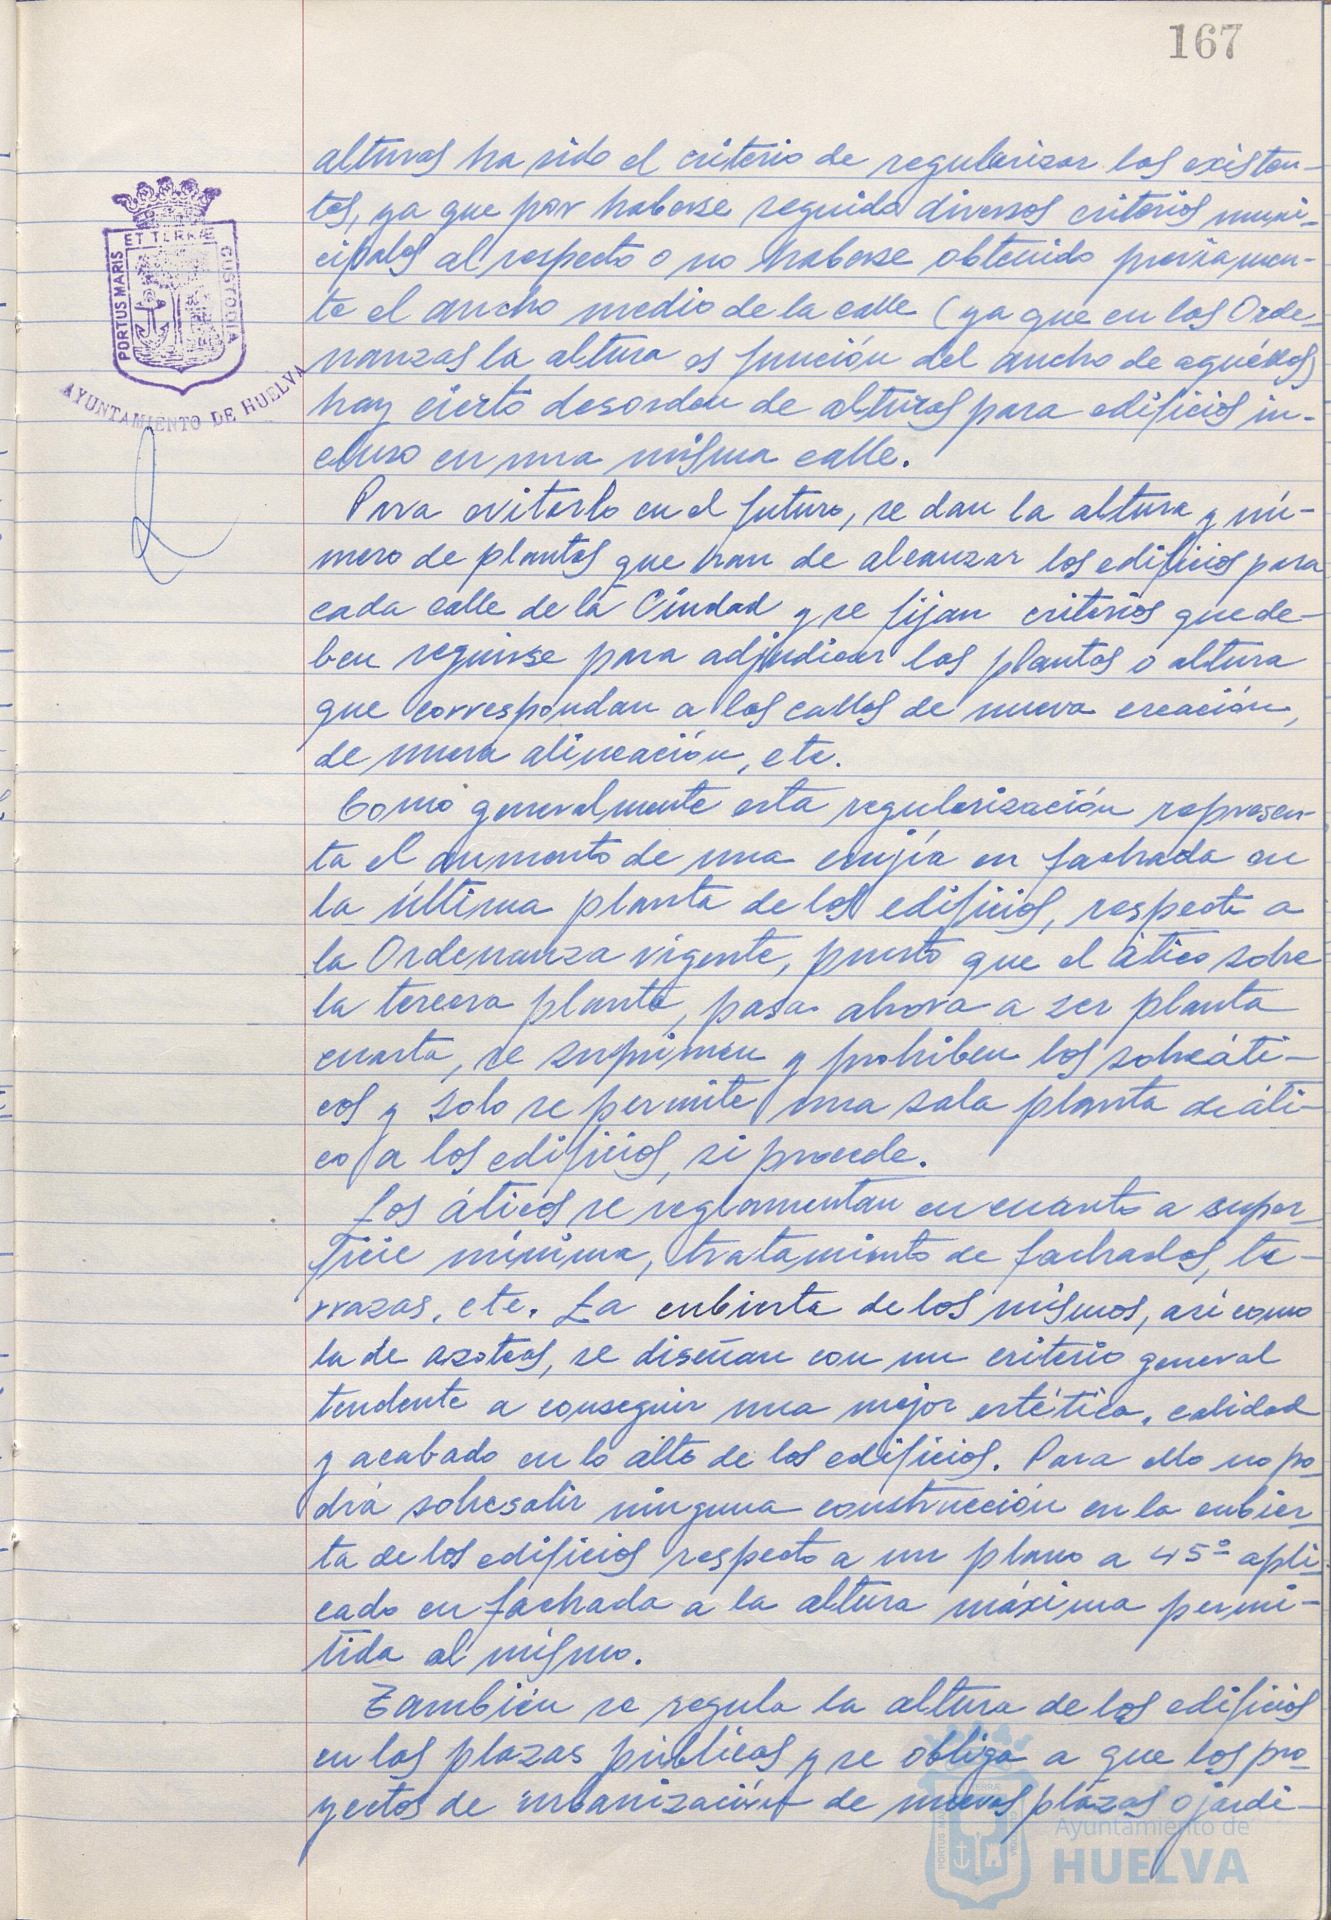 167
alturas ha sido el criterio de regularizar las existen-
tes, ya que por haberse seguido diversos criterios muni-
cipales al respecto o no haberse obtenido previamen-
te el ancho medio de la calle (ya que en las Orde-
nanzas la altura es función del ancho de aquéllas)
hay cierto desorden de alturas para edificios in-
cluso en una misma calle.
Para evitarlo en el futuro, se dan la altura y nú-
mero de plantas que han de alcanzar los edificios para
cada calle de la Ciudad y se fijan criterios que de-
ben seguirse para adjudicar las plantas o altura
que correspondan a las calles de nueva creación,
de nueva alineación, etc.
Como generalmente esta regularización represen-
ta el aumento de una crujía en fachada en
la última planta de los edificios, respecto a
la Ordenanza vigente, puesto que el ático sobre
la tercera planta, pasa ahora a ser planta
cuarta, se suprimen y prohiben los sobreáti-
cos y solo se permite una sola planta de áti-
co a los edificios, si procede.
Los áticos se reglamentan en cuanto a super-
ficie mínima, tratamiento de fachadas, te-
rrazas, etc. La cubierta de los mismos, así como
la de azoteas, se diseñan con un criterio general
tendente a conseguir una mejor estética, calidad
y acabado en lo alto de los edificios. Para ello no po-
drá sobresalir ninguna construcción en la cubier-
ta de los edificios respecto a un plano a 45º apli-
cado en fachada a la altura máxima permi-
tida al mismo.
También se regula la altura de los edificios
en las plazas públicas y se obliga a que los pro-
yectos de urbanización de nuevas plazas o jardi-
PORTUS MARIS ET TERRÆ CUSTODIA
AYUNTAMIENTO DE HUELVA
Ayuntamiento de
HUELVA